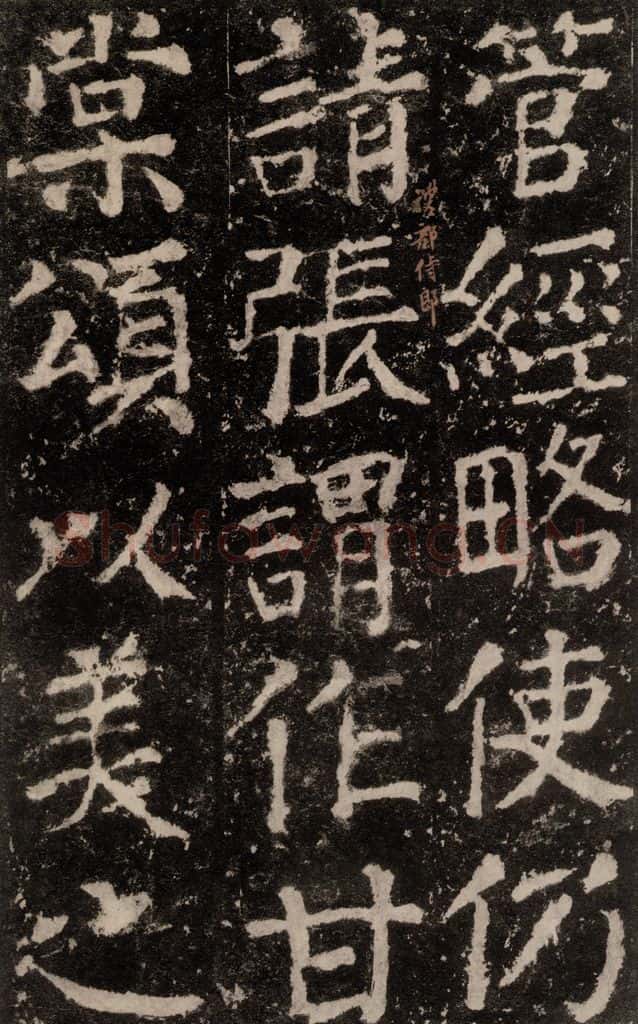 管經略使仍
請張謂作甘
棠頌以美之
禮部侍郎
Shufawang.CN